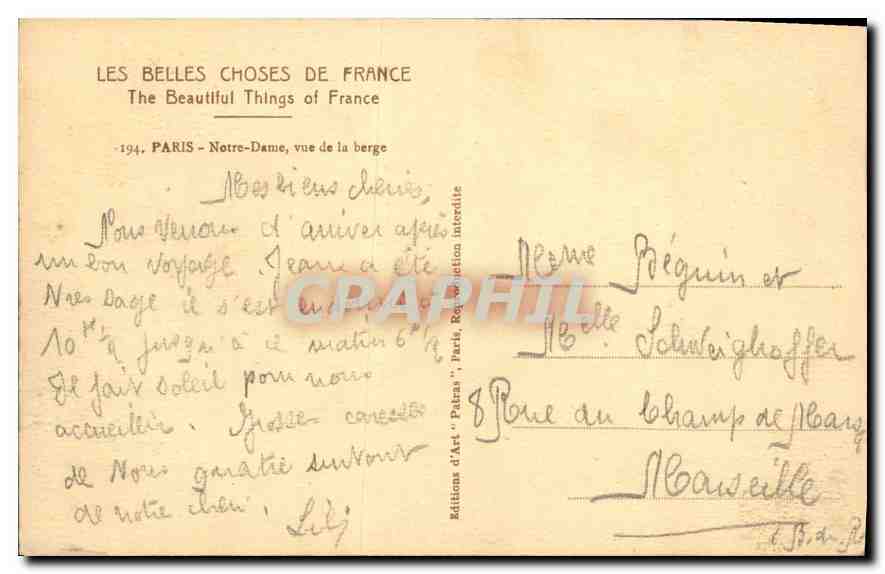 LES BELLES CHOSES DE FRANCE
The Beautiful Things of France
194. PARIS - Notre-Dame, vue de la berge
Mes biens cheries,
Nous venons d'arriver après
un bon voyage. Jean a été
très sage il s'est endormi à
10 H 1/2 jusqu'à ce matin 6 H 1/2
Il fait soleil pour nous
accueillir. Grosses caresses
de nous quatre surtout
de notre cheri.
Lili
Editions d'Art "Patras", Paris, Reproduction interdite
CPAPHIL
Mme Béguin et
Melle Schweighoffer
8 Rue du Champ de Mars
Marseille
B. du R.